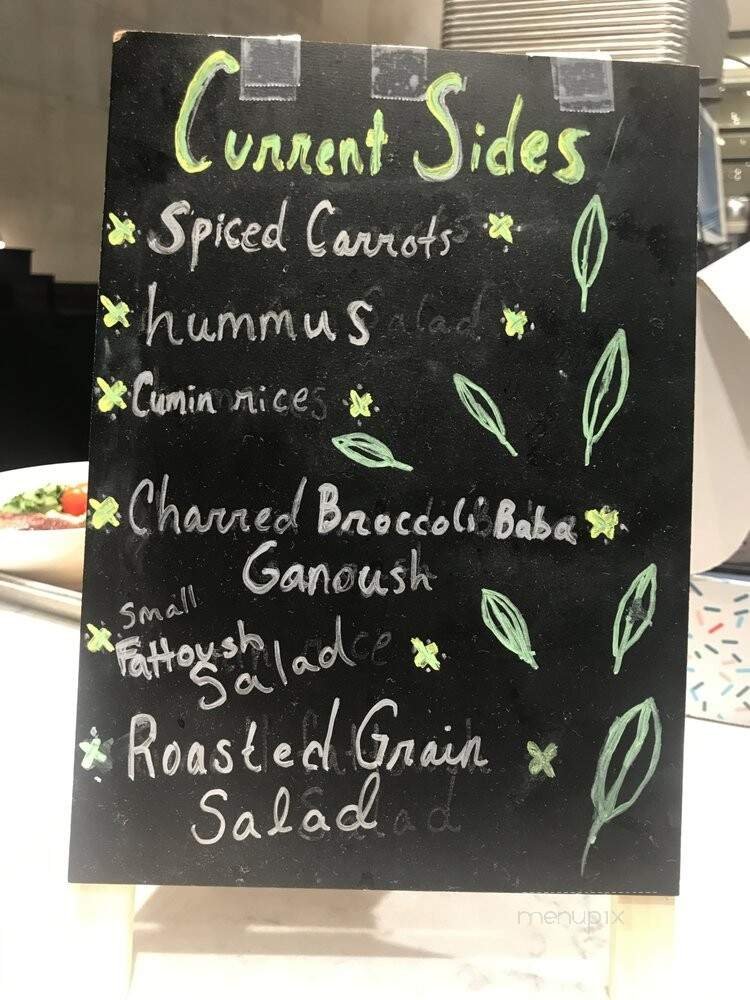 Current Sides
Spiced Carrots
hummus
Cumin rice
Charred Broccoli Baba
Ganoush
Small
Fattoush
Salad
Roasted Grain
Salad
menupix